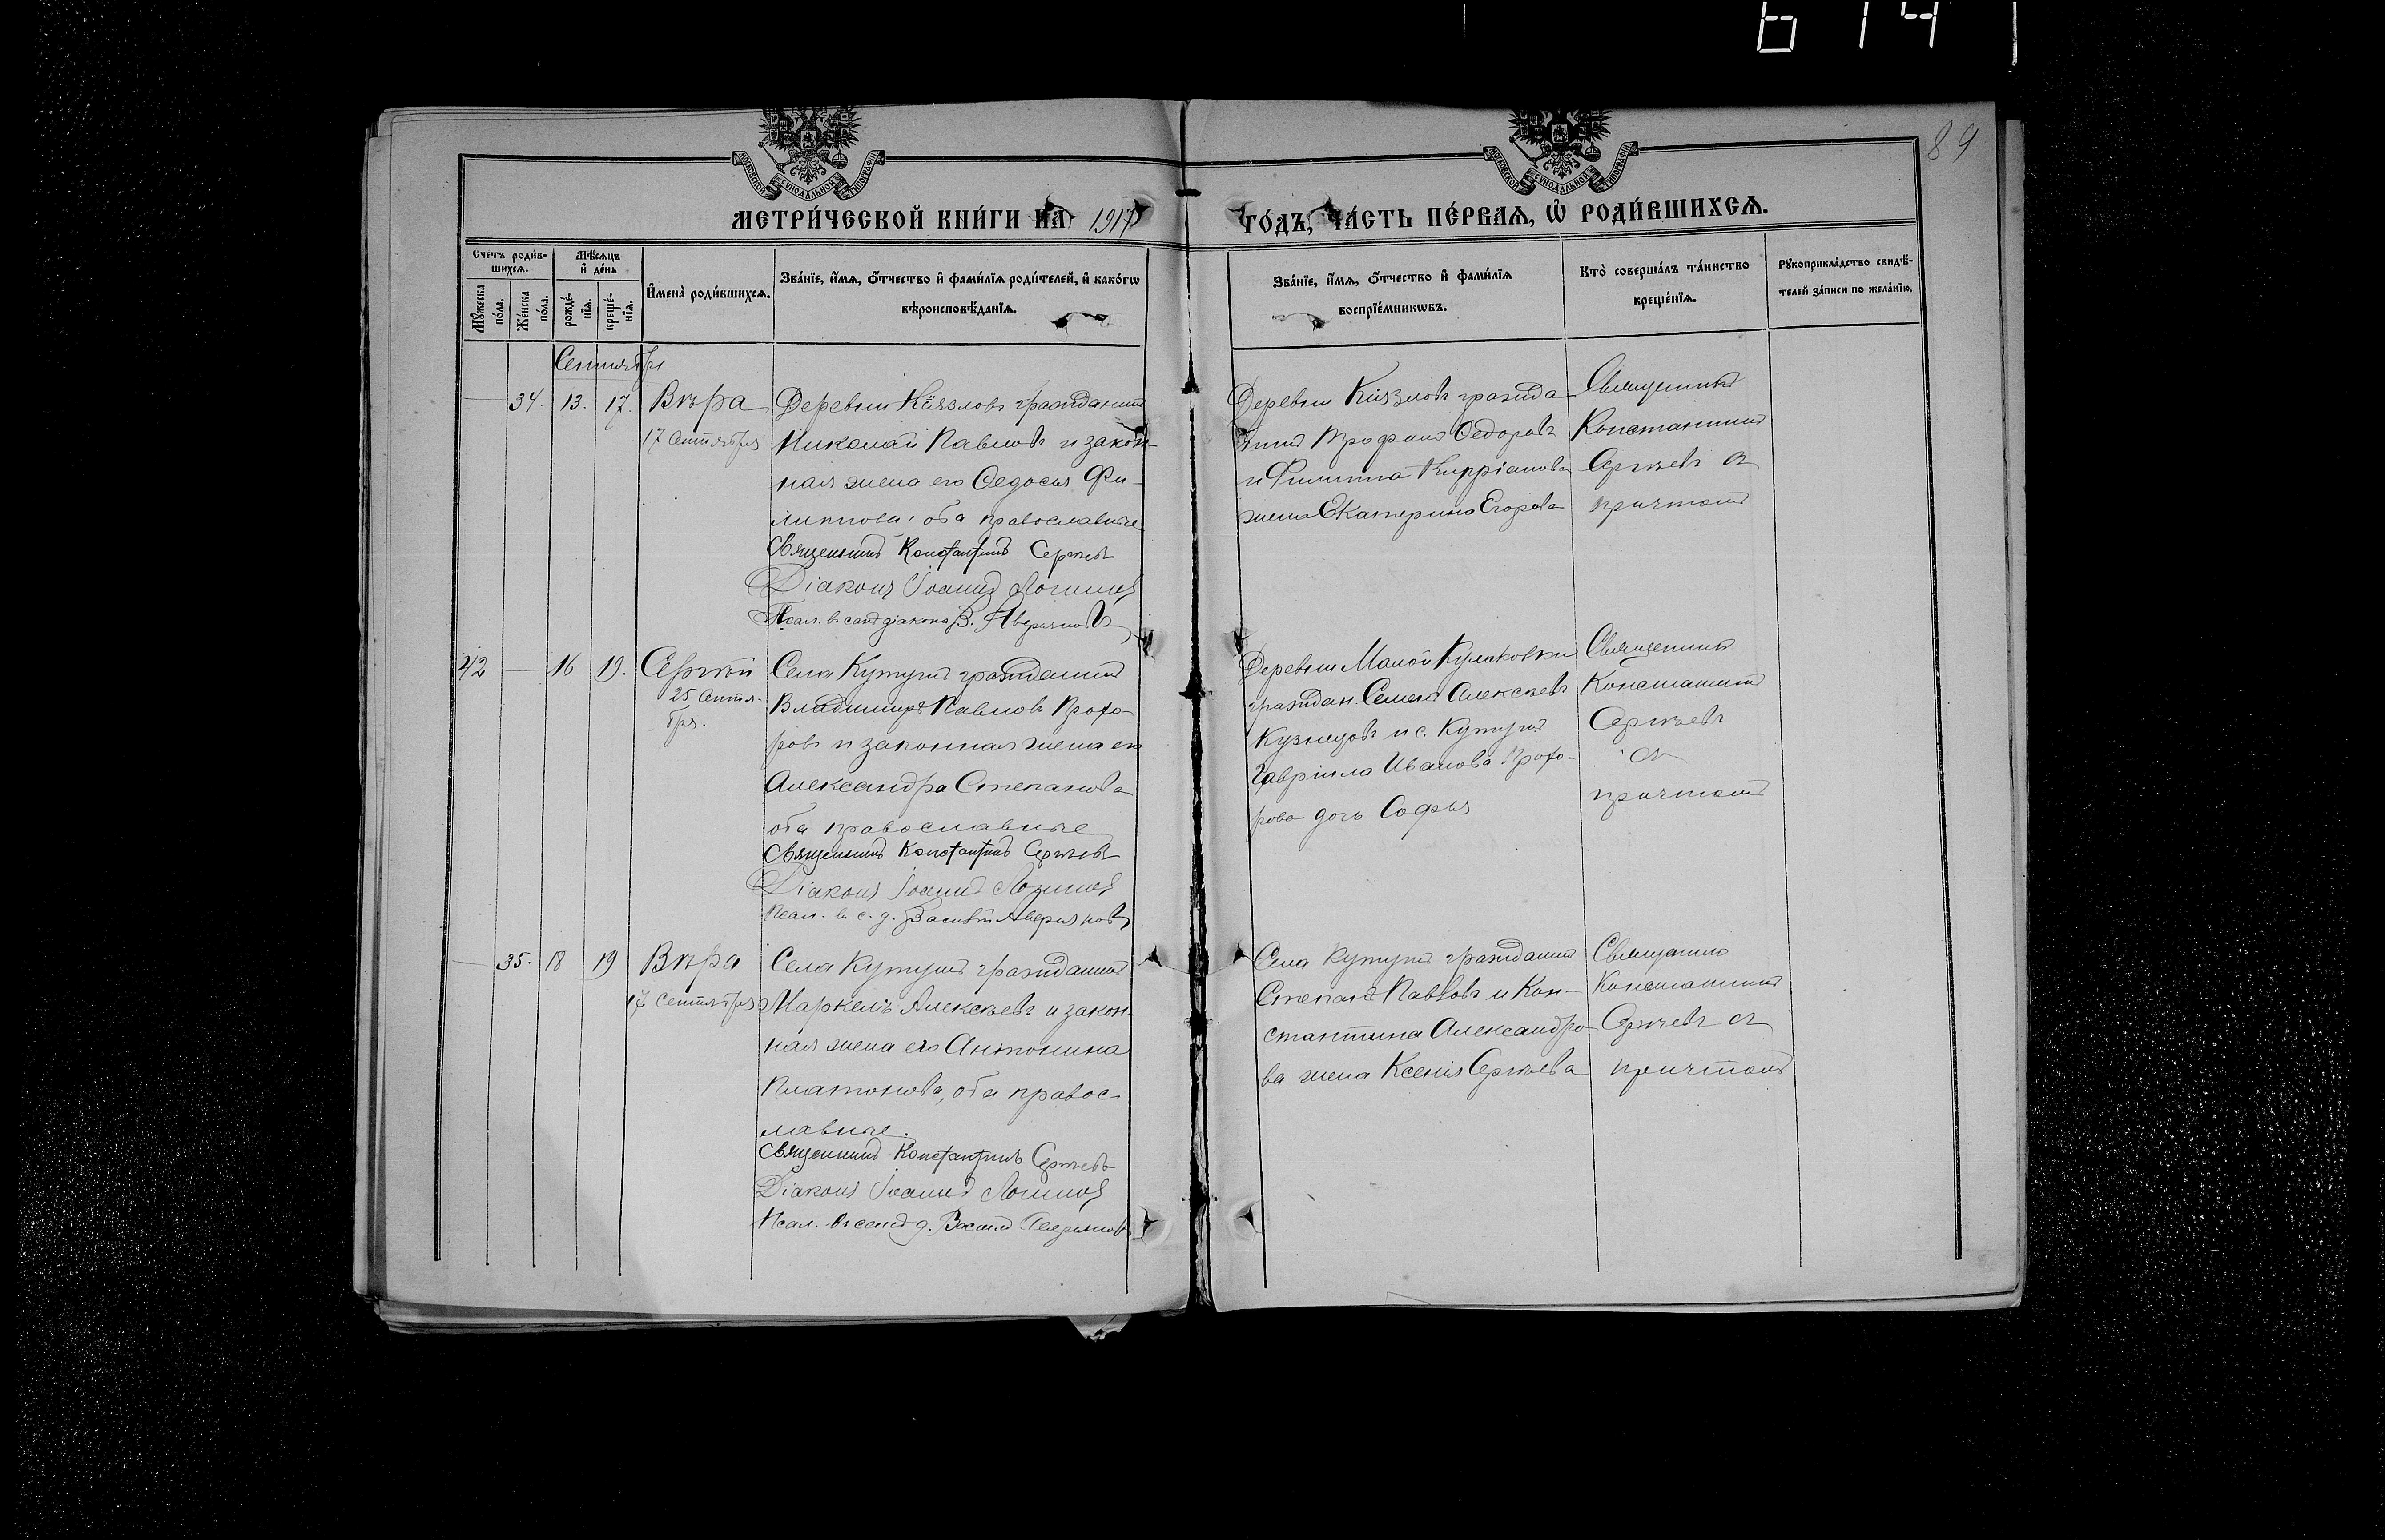 6141
89
МОСКОВСКОЙ СѴНОДАЛЬНОЙ ТИПОГРАФІИ
МОСКОВСКОЙ СѴНОДАЛЬНОЙ ТИПОГРАФІИ
МЕТРИ́ЧЕСКОЙ КНИ́ГИ НА 1917
ГО́ДЪ, ЧА́СТЬ ПЕ́РВАѦ, Ѡ҆ РОДИ́ВШИХСѦ.
Сче́тъ роди́в-
шихсѧ.
Мꙋ́жеска по́ла.
Же́нска по́ла.
Мѣ́сѧцъ и҆ де́нь
рожде́-
нїѧ.
креще́-
нїѧ.
И҆мена̀ роди́вшихсѧ.
Зва́нїе, и҆́мѧ, ѻ҆́тчество и҆ фами́лїѧ роди́телей, и҆ како́гѡ
вѣроисповѣ́данїѧ.
Зва́нїе, и҆́мѧ, ѻ҆́тчество и҆ фами́лїѧ
воспрїе́мникѡвъ.
Кто̀ соверша́лъ та́инство
креще́нїѧ.
Рꙋкоприкла́дство свидѣ́-
телей за́писи по жела́нїю.
Сентябрь
34. 13. 17. Вѣра
17 Сентября
Деревни Князловъ гражданинъ
Николай Павловъ и закон-
ная жена его Ѳедосья Фи-
липпова, оба православные
Священникъ Константинъ Сергѣевъ
Діаконъ Іоаннъ Логиновъ
Псал. въ санѣ діакона В. Аверьяновъ
Деревни Князловъ гражда-
нинъ Трофимъ Ѳедоровъ
и Филиппа Кипріанова
жена Екатерина Егорова
Священникъ
Константинъ
Сергѣевъ съ
причтомъ
42 16 19. Сергѣй
25 Сентя-
бря.
Села Кутушъ гражданинъ
Владимиръ Павловъ Прохо-
ровъ и законная жена его
Александра Степанова
оба православные
Священникъ Константинъ Сергѣевъ
Діаконъ Іоаннъ Логиновъ
Псал. въ с. д. Василій Аверьяновъ
Деревни Малой Кулаковки
граждан. Семенъ Алексѣевъ
Кузнецовъ и с. Кутушъ
Гавріила Иванова Прохо-
рова дочь Софья
Священникъ
Константинъ
Сергѣевъ
съ
причтомъ
35. 18 19 Вѣра
17 Сентября
Села Кутушъ гражданинъ
Маркелъ Алексѣевъ и закон-
ная жена его Антонина
Платонова, оба правос-
лавные.
Священникъ Константинъ Сергѣевъ
Діаконъ Іоаннъ Логиновъ
Псал. въ санѣ д. Василій Аверьяновъ
Села Кутушъ гражданинъ
Степанъ Павловъ и Кон-
стантина Александро-
ва жена Ксенія Сергѣева
Священникъ
Константинъ
Сергѣевъ съ
причтомъ